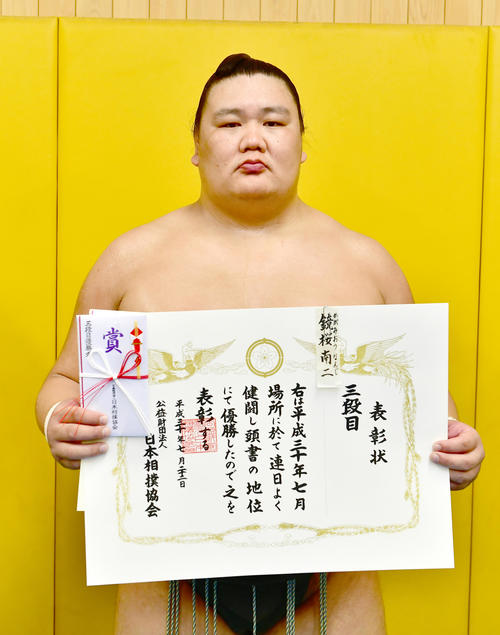 表彰状
三段目
鏡桜南二
右は平成三十年七月
場所に於て連日よく
健闘し頭書の地位
にて優勝したので之を
表彰する
平成三十年七月二十二日
公益財団法人
日本相撲協会
賞
三段目優勝
日本相撲協会